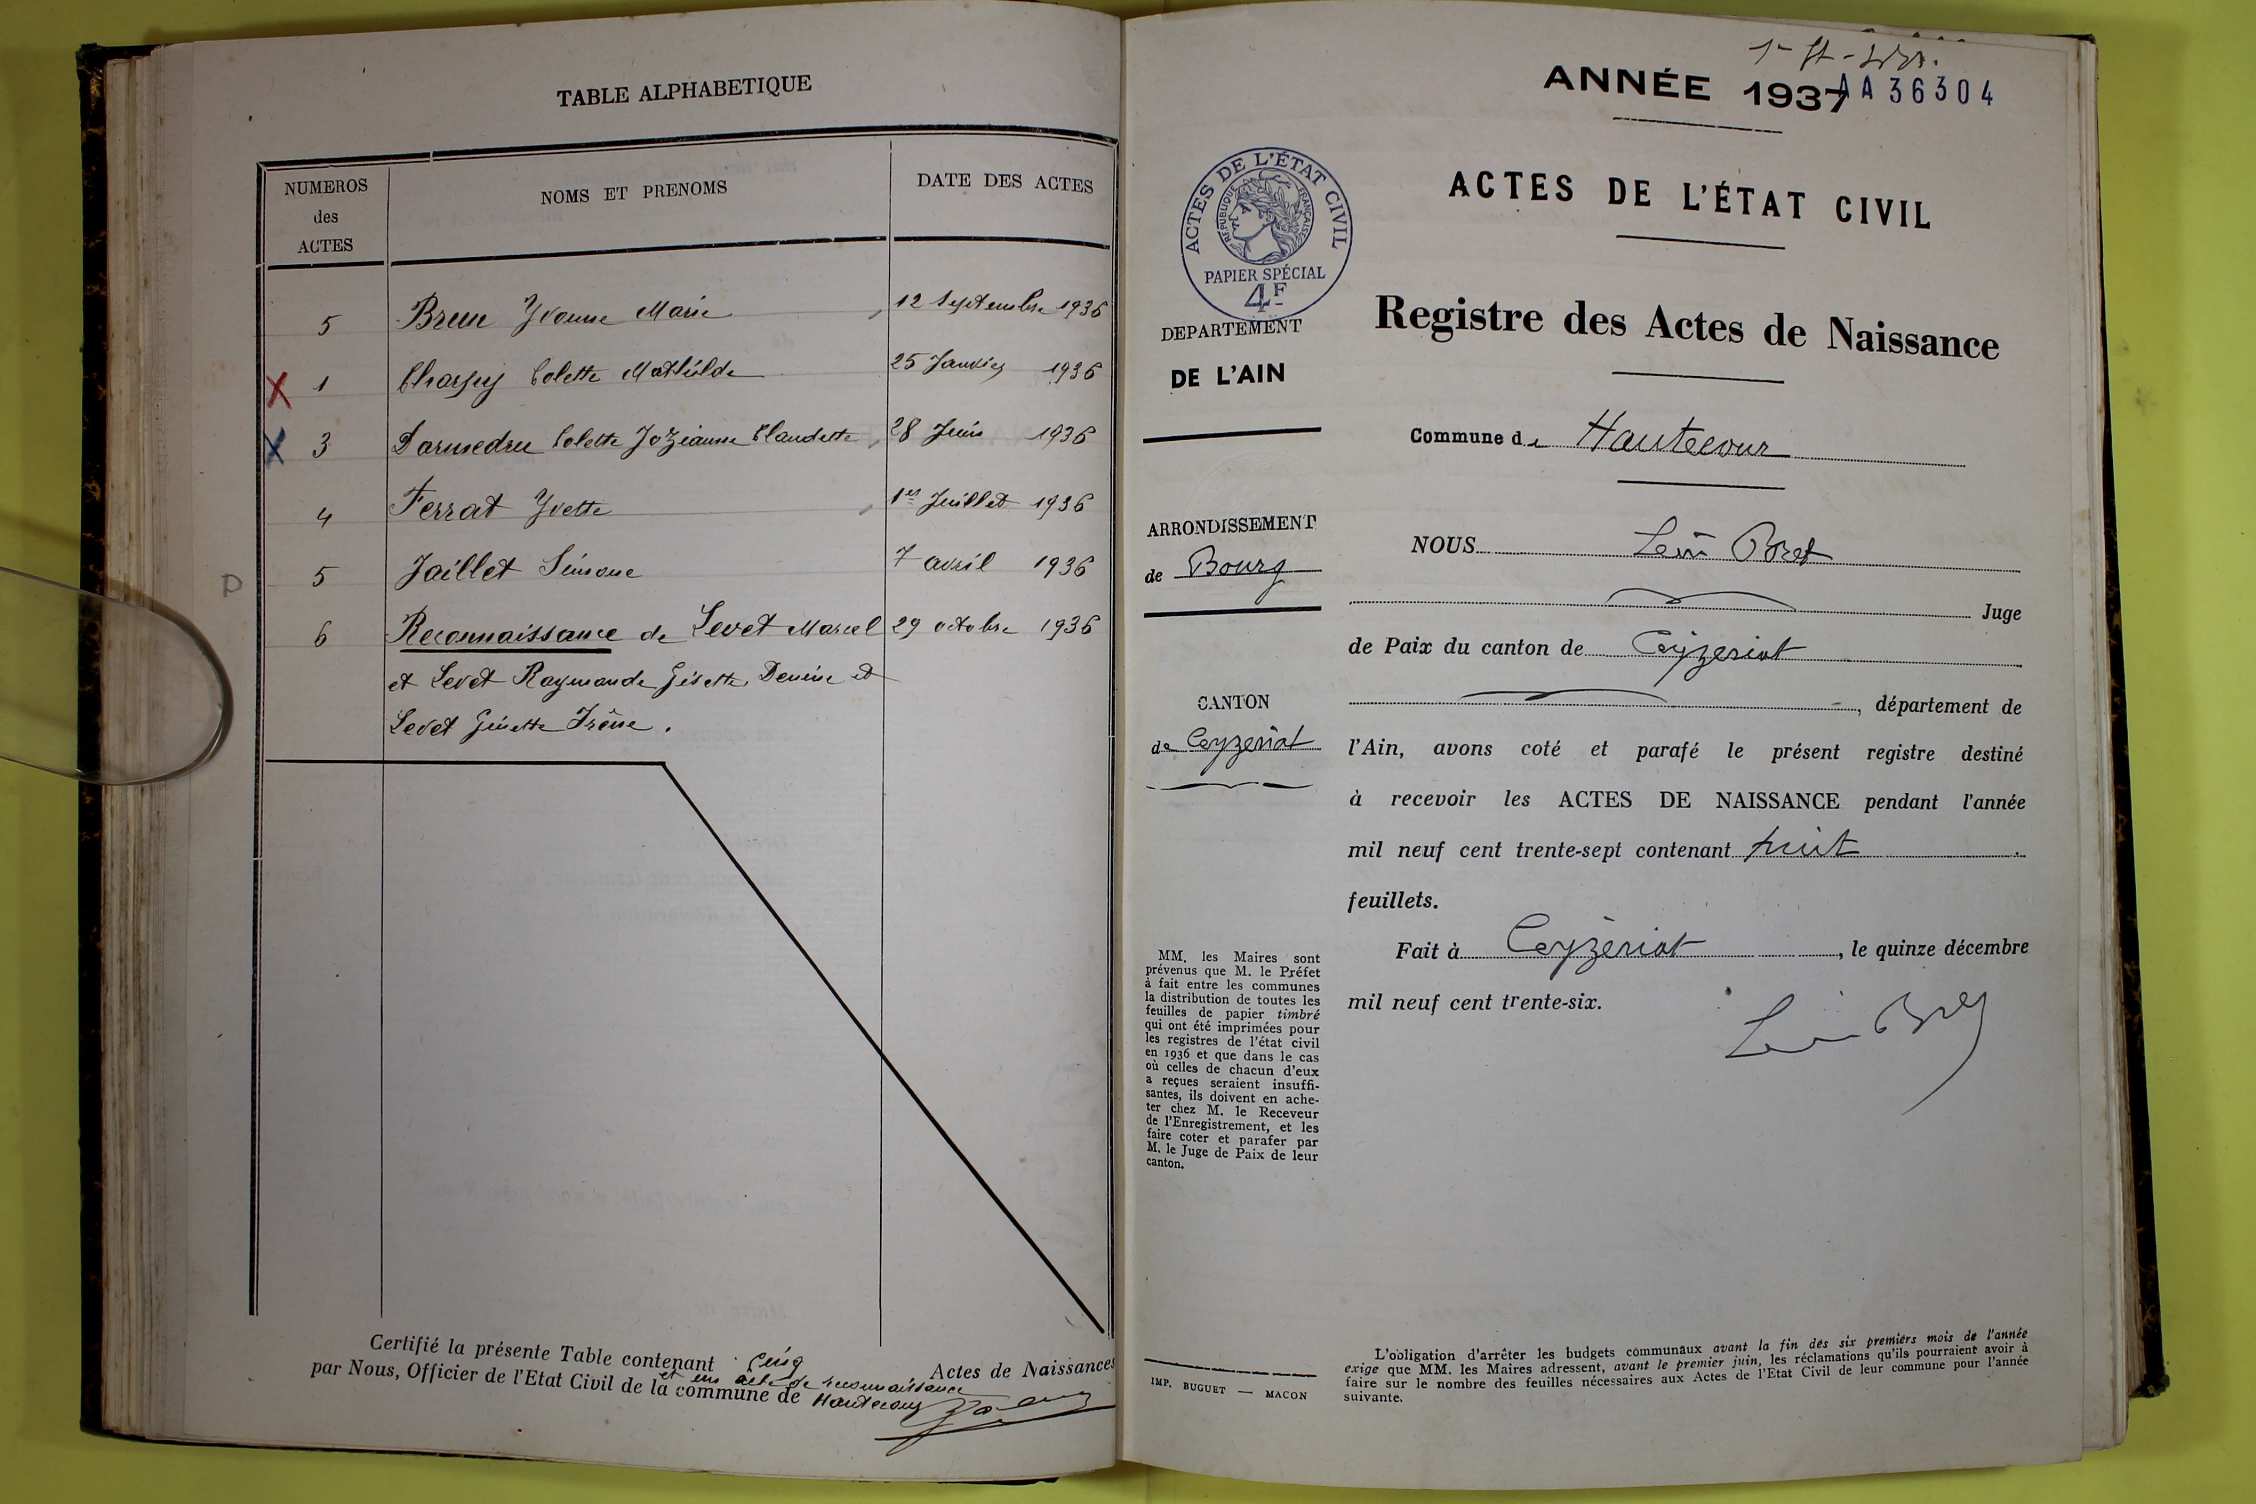 TABLE ALPHABETIQUE
NUMEROS
des
ACTES
NOMS ET PRENOMS
DATE DES ACTES
5 Brun Yvonne Marie 12 Septembre 1936
X 1 Charpy Colette Mathilde 25 Janvier 1936
X 3 Darmedru Colette Jozianne Claudette 28 Juin 1936
4 Ferrat Yvette 1er Juillet 1936
P 5 Jaillet Simone 7 avril 1936
6 Reconnaissance de Levet Marcel 29 octobre 1936
et Levet Raymonde Gisette Denise et
Levet Ginette Irène.
Certifié la présente Table contenant cinq Actes de Naissances
et un acte de reconnaissance
par Nous, Officier de l'Etat Civil de la commune de Hautecour
ANNÉE 1937
AA 36304
ACTES DE L'ÉTAT CIVIL
RÉPUBLIQUE FRANÇAISE
PAPIER SPÉCIAL
4F
ACTES DE L'ÉTAT CIVIL
Registre des Actes de Naissance
DEPARTEMENT
DE L'AIN
Commune de Hautecour
ARRONDISSEMENT
de Bourg
NOUS Léon
Juge
de Paix du canton de Ceyzeriat
CANTON
de Ceyzeriat
, département de
l'Ain, avons coté et parafé le présent registre destiné
à recevoir les ACTES DE NAISSANCE pendant l'année
mil neuf cent trente-sept contenant huit
feuillets.
Fait à Ceyzériat, le quinze décembre
mil neuf cent trente-six.
MM. les Maires sont
prévenus que M. le Préfet
à fait entre les communes
la distribution de toutes les
feuilles de papier timbré
qui ont été imprimées pour
les registres de l'état civil
en 1936 et que dans le cas
où celles de chacun d'eux
a reçues seraient insuffi-
santes, ils doivent en ache-
ter chez M. le Receveur
de l'Enregistrement, et les
faire coter et parafer par
M. le Juge de Paix de leur
canton.
IMP. BUGUET — MACON
L'obligation d'arrêter les budgets communaux avant la fin des six premiers mois de l'année
exige que MM. les Maires adressent, avant le premier juin, les réclamations qu'ils pourraient avoir à
faire sur le nombre des feuilles nécessaires aux Actes de l'Etat Civil de leur commune pour l'année
suivante.